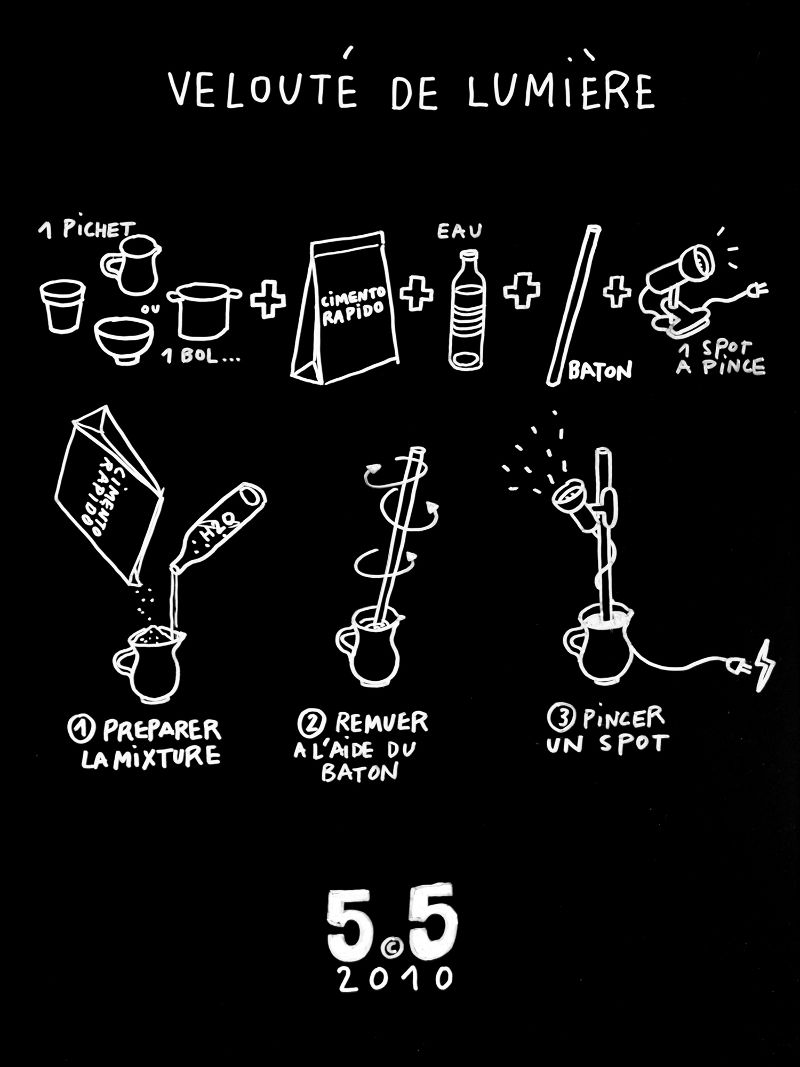 VELOUTÉ DE LUMIÈRE
1 PICHET
OU
1 BOL...
CIMENTO
RAPIDO
EAU
BATON
1 SPOT
A PINCE
CIMENTO
RAPIDO
H2O
① PREPARER
LA MIXTURE
② REMUER
A L'AIDE DU
BATON
③ PINCER
UN SPOT
5.5
©
2010